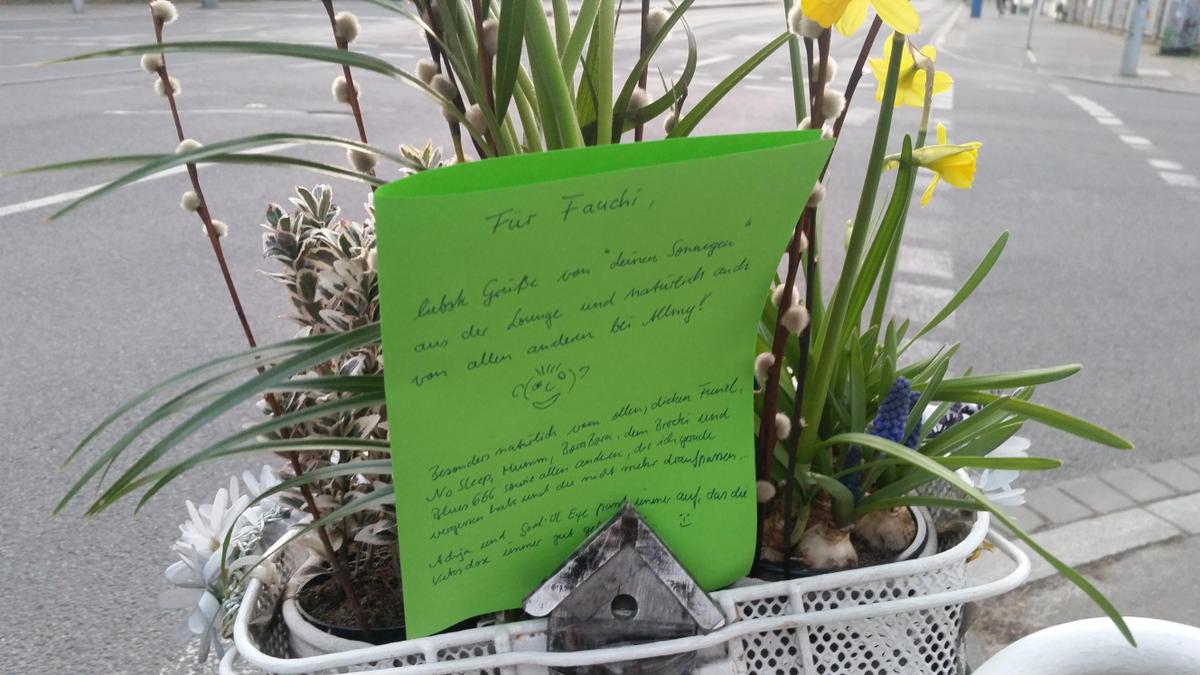 Für Fauchi,
liebste Grüße von "deinen Sonnigen"
aus der Lounge und natürlich auch
von allen anderen bei Allmy!
Besonders natürlich vom alten, dicken Funzl,
No Sleep, Mumm, BamBora, dem Brocki und
Blues 666 sowie allen anderen, die ich gerade
vergessen habe und die nicht mehr draufpassen...
und Soul-Of Eye immer auf, das die
immer gut